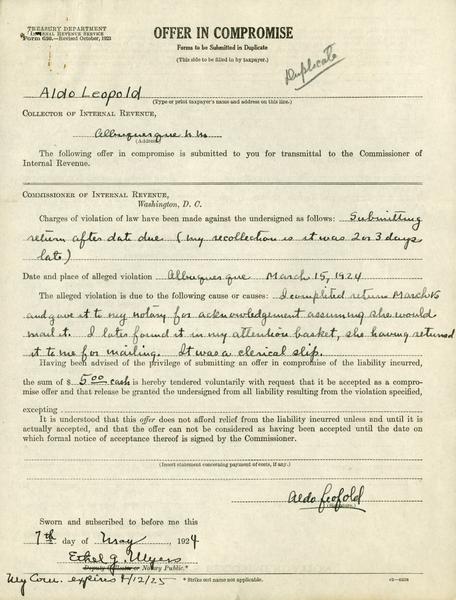 TREASURY DEPARTMENT
INTERNAL REVENUE SERVICE
Form 656.—Revised October, 1923
OFFER IN COMPROMISE
Forms to be Submitted in Duplicate
(This side to be filled in by taxpayer.)
Duplicate
Aldo Leopold
(Type or print taxpayer's name and address on this line.)
COLLECTOR OF INTERNAL REVENUE,
Albuquerque N.M.
(Address)
The following offer in compromise is submitted to you for transmittal to the Commissioner of
Internal Revenue.
COMMISSIONER OF INTERNAL REVENUE,
Washington, D. C.
Charges of violation of law have been made against the undersigned as follows: Submitting
return after date due (my recollection is it was 2 or 3 days
late)
Date and place of alleged violation Albuquerque March 15, 1924
The alleged violation is due to the following cause or causes: I completed return March 15
and gave it to my notary for acknowledgement assuming she would
mail it. I later found it in my attention basket, she having returned
it to me for mailing. It was a clerical slip.
Having been advised of the privilege of submitting an offer in compromise of the liability incurred,
the sum of $ 5.00 cash is hereby tendered voluntarily with request that it be accepted as a compro-
mise offer and that release be granted the undersigned from all liability resulting from the violation specified,
excepting
It is understood that this offer does not afford relief from the liability incurred unless and until it is
actually accepted, and that the offer can not be considered as having been accepted until the date on
which formal notice of acceptance thereof is signed by the Commissioner.
(Insert statement concerning payment of costs, if any.)
Aldo Leopold
Sworn and subscribed to before me this
7th day of May, 1924
Ethel G. Myers
Deputy Collector or Notary Public.*
My Com. expires 1/12/25
* Strike out name not applicable.